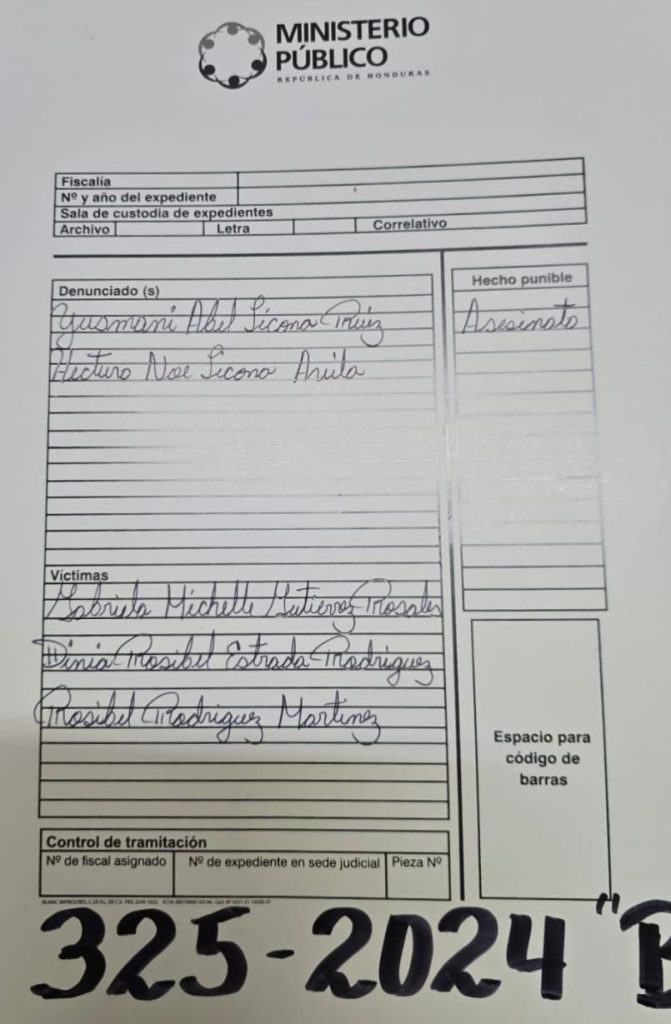 MINISTERIO
PÚBLICO
REPÚBLICA DE HONDURAS
Fiscalía
Nº y año del expediente
Sala de custodia de expedientes
Archivo Letra Correlativo
Denunciado (s)
Yusmani Abel Licona Ruiz
Noe Licona
Hecho punible
Asesinato
Víctimas
Gabriela Michelle Gutierrez Rosales
Dinia Rosibel Estrada Rodriguez
Rosibel Rodriguez Martinez
Espacio para
código de
barras
Control de tramitación
Nº de fiscal asignado Nº de expediente en sede judicial Pieza Nº
325-2024 "B